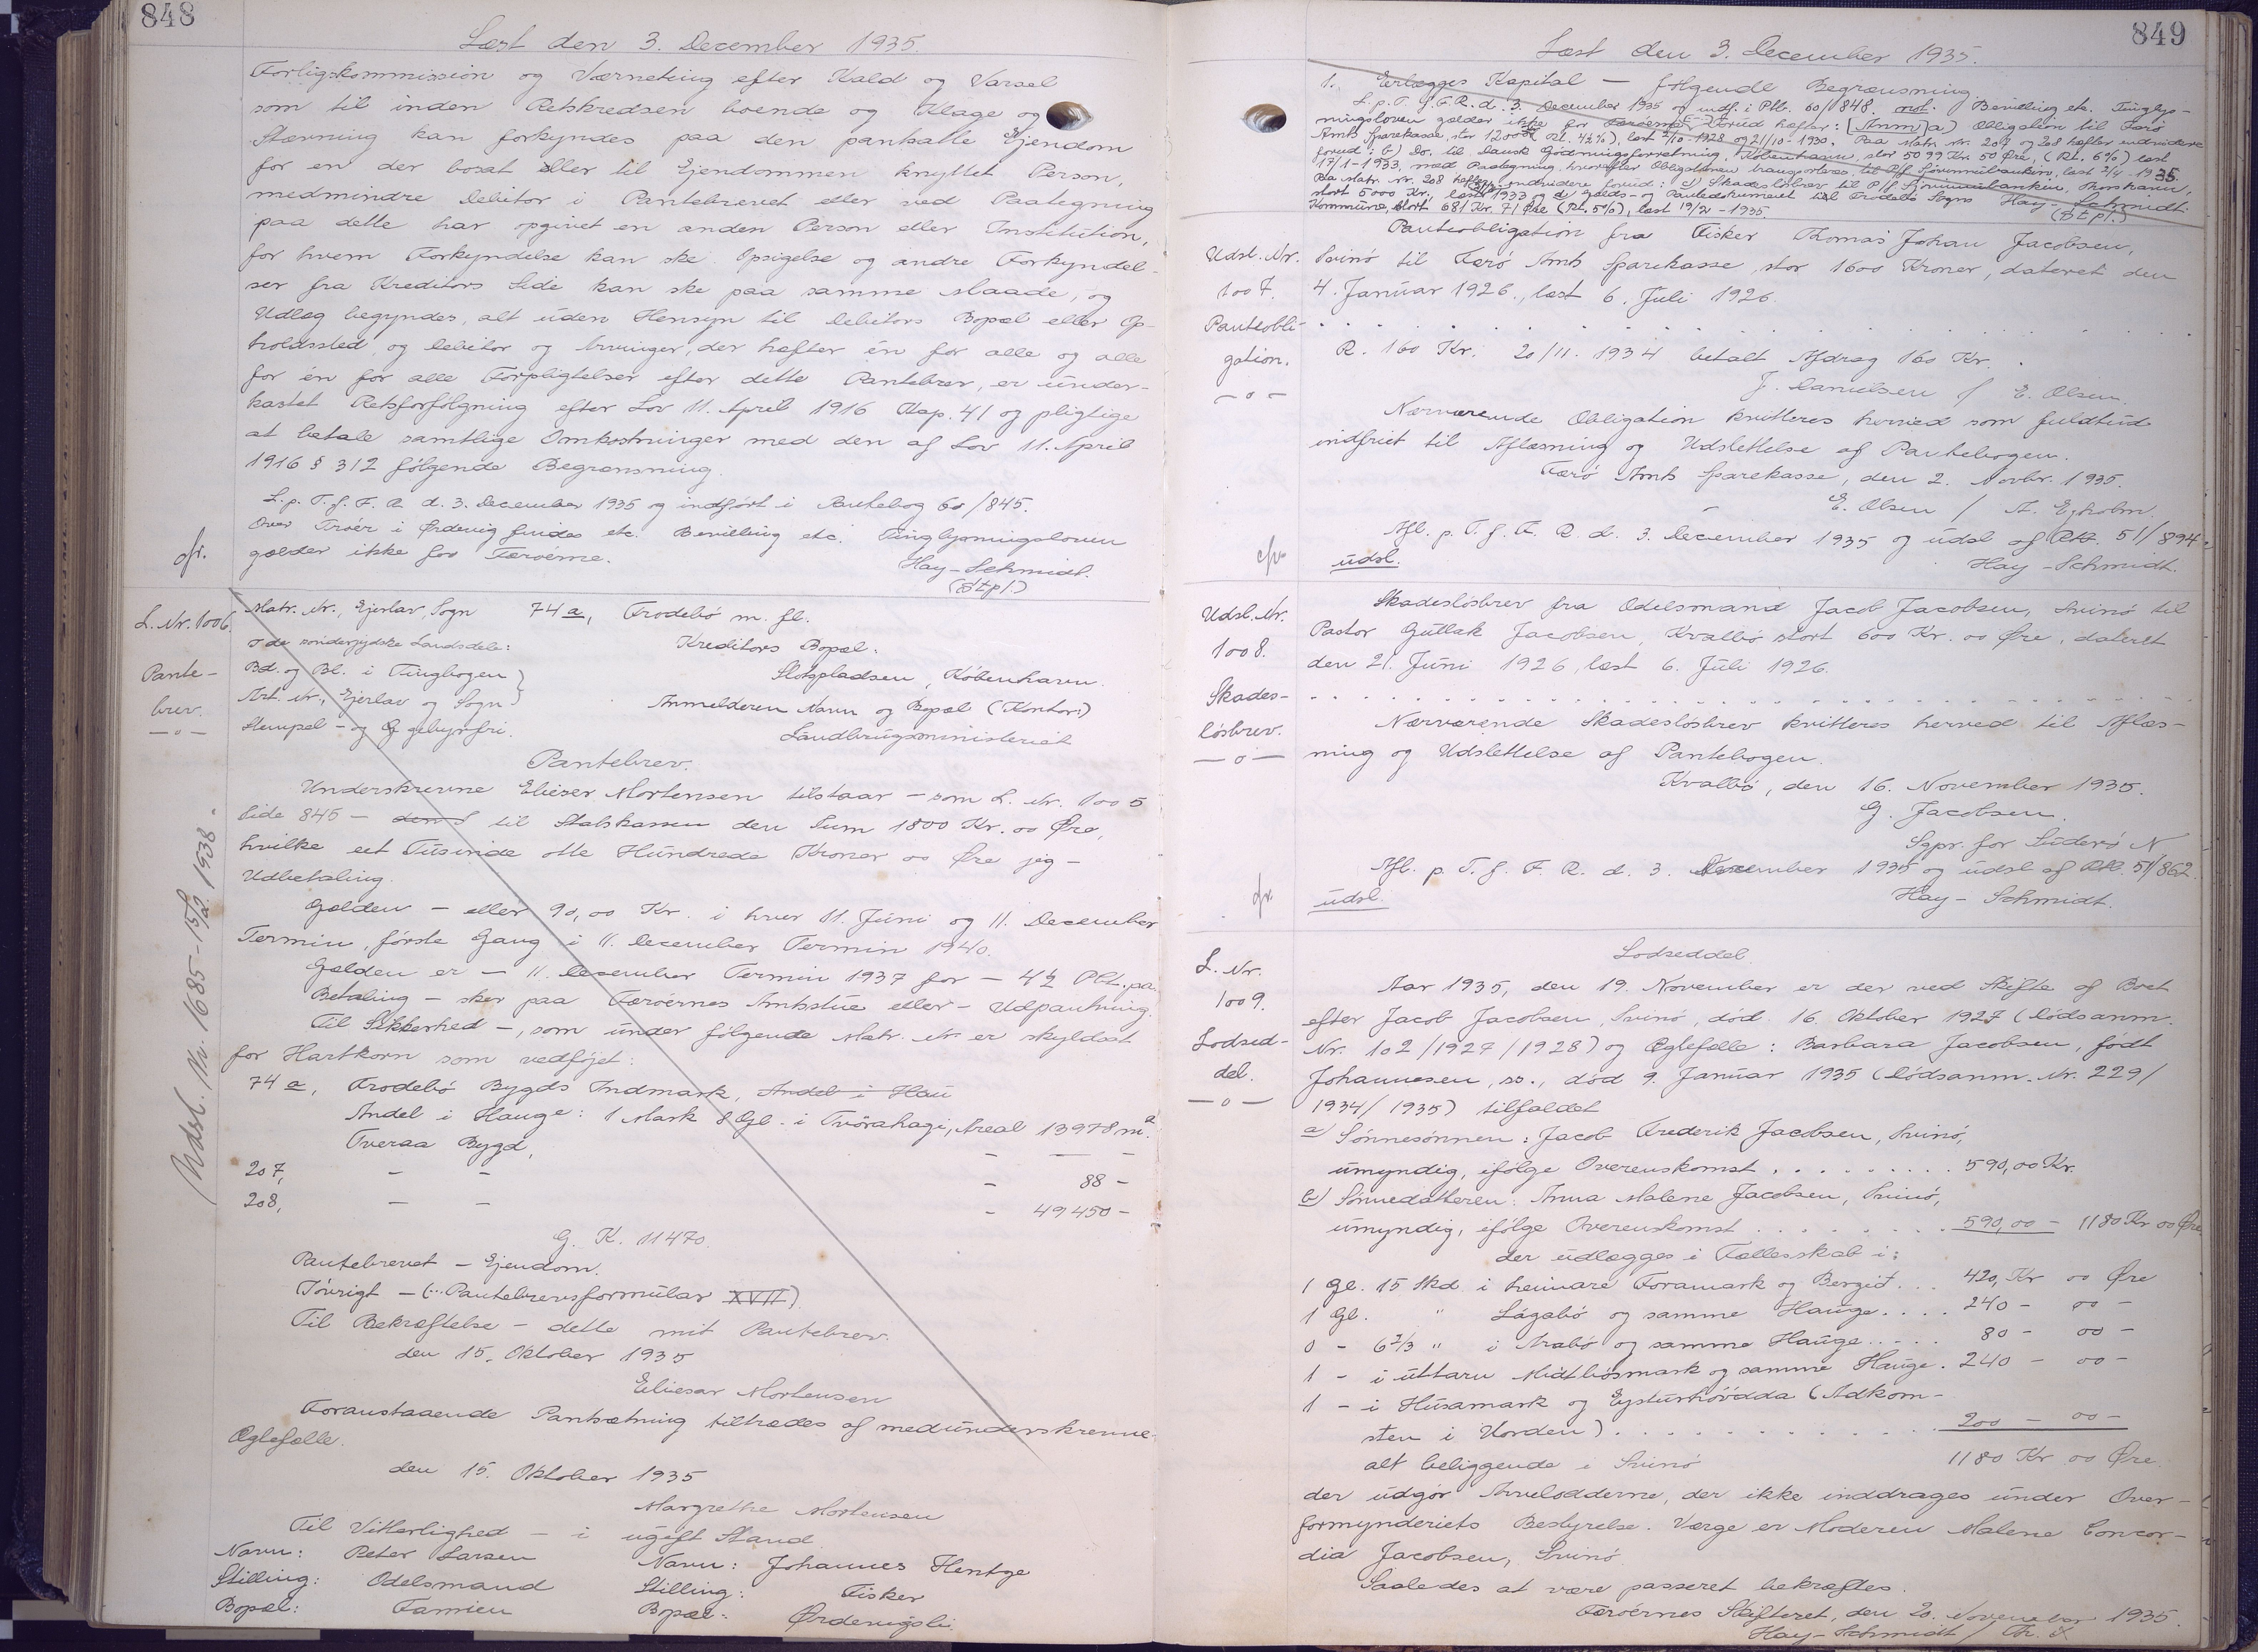 848
Læst den 3. December 1935.
Forligskommission og Værneting efter Kald og Varsel
som til inden Retskredsen boende og Klage og
Stævning kan forkyndes paa den pantsatte Ejendom
for en der bosat eller til Ejendommen knyttet Person,
medmindre Debitor i Pantebrevet eller ved Paategning
paa dette har opgivet en anden Person eller Institution,
for hvem Forkyndelse kan ske. Opsigelse og andre Forkyndel-
ser fra Kreditors Side kan ske paa samme Maade, og
Udlæg begyndes, alt uden Hensyn til Debitors Bopæl eller Op-
holdssted, og Debitor og Arvinger, der hæfter én for alle og alle
for én for alle Forpligtelser efter dette Pantebrev, er under-
kastet Retsforfølgning efter Lov 11. April 1916 Kap. 41 og pligtige
at betale samtlige Omkostninger med den af Lov 11. April
1916 § 312 følgende Begrænsning.
L. p. T. f. F. R. d. 3. December 1935 og indført i Pantebog 60/845.
Over Trøer i Ørdevig findes etc. Bevilling etc. Tinglysningsloven
gælder ikke for Færøerne.
Hay-Schmidt.
(Stpl.)
cfr.
L. Nr. 1006.
Pante-
brev.
— " —
Matr. Nr., Ejerlav, Sogn 74 a, Frodebø m. fl.
o de sønderjydske Landsdele: Kreditors Bopæl:
Bd. og Bl. i Tingbogen } Slotspladsen, København.
Art. Nr., Ejerlav og Sogn } Anmelderen Navn og Bopæl (Kontor)
Stempel- og gebyrfri. Landbrugsministeriet
Pantebrev.
Underskrevne Elieser Mortensen tilstaar — som L. Nr. 1005
Side 845 — til Statskassen den Sum 1800 Kr. 00 Øre,
hvilke eet Tusinde otte Hundrede Kroner 00 Øre jeg —
Udbetaling.
Gælden — eller 90,00 Kr. i hver 11. Juni og 11. December
Termin, første Gang i 11. December Termin 1940.
Gælden er — 11. December Termin 1937 for — 4½ Pct. pa.
Betaling — sker paa Færøernes Amtstue eller — Udpantning.
Til Sikkerhed —, som under følgende Matr. Nr. er skyldsat
for Hartkorn som vedføjet:
74 a, Frodebø Bygds Indmark, Andel i Hau
Andel i Hauge: 1 Mark 8 Gl. i Tvørahagi, Areal 13978 m².
Tveraa Bygd, — — —
207, — — — 88 —
208, — — — 49450 —
G. K. 11470.
Pantebrevet — Ejendom.
Iøvrigt — (... Pantebrevsformular XVII)
Til Bekræftelse — dette mit Pantebrev.
den 15. Oktober 1935
Eliesar Mortensen
Foranstaaende Pantsætning tiltrædes af medunderskrevne
Ægtefælle.
den 15. Oktober 1935
Margrethe Mortensen
Til Vitterlighed — i ugift Stand
Navn: Peter Larsen Navn: Johannes Hentze
Stilling: Odelsmand Stilling: Fisker
Bopæl: Famien Bopæl: Ørdevigsli.
Udsl. Nr. 1685 - 15/12 1938.
849
Læst den 3. December 1935.
1. Erlægges Kapital — følgende Begrænsning.
L. p. T. f. F. R. d. 3. December 1935 og indf. i Ptb. 60/848. Bevilling etc. Tinglys-
ningsloven gælder ikke for Færøerne. Forud hæfter: [Anm] a) Obligation til Færø
Amts Sparekasse, stor 12000 Kr. (Rt. 4½%), læst 2/10-1928 og 21/10-1930. Paa Matr. Nr. 207 og 208 hæfter endvidere
forud: b) Do. til Dansk Gødningsforretning, København, stor 5099 Kr. 50 Øre, (Rt. 6%) læst
17/1-1933, med Paategning, hvorefter Obligationen transporteres til P/f Føroyabankin, læst 2/4-1935.
Paa Matr. Nr. 208 hæfter endvidere forud: c) Skadesløsbrev til P/f Føroyabankin, Thorshavn,
stort 5000 Kr., læst 1933 og d) Gælds- og Pantedokument til Frodebø Sogns
Kommune, stort 681 Kr. 71 Øre (Rt. 5%), læst 19/2-1935.
Hay-Schmidt.
(Stpl.)
Udsl. Nr.
1007.
Panteobli-
gation.
— " —
Panteobligation fra Fisker Thomas Johan Jacobsen,
Svinø til Færø Amts Sparekasse, stor 1600 Kroner, dateret den
4. Januar 1926, læst 6. Juli 1926.
R. 160 Kr. 20/11. 1934 betalt Afdrag 160 Kr.
J. Danielsen / E. Olsen.
Nærværende Obligation kvitteres herved som fuldtud
indfriet til Aflæsning og Udslettelse af Pantebogen.
Færø Amts Sparekasse, den 2. Novbr. 1935.
E. Olsen / A. Ejholm.
Afl. p. T. f. F. R. d. 3. December 1935 og udsl. af Ptb. 51/894
udsl.
Hay-Schmidt.
cfr.
Udsl. Nr.
1008.
Skades-
løsbrev.
— o —
Skadesløsbrev fra Odelsmand Jacob Jacobsen, Svinø til
Pastor Gutlak Jacobsen, Kvalbø stort 600 Kr. 00 Øre, dateret
den 21. Juni 1926, læst 6. Juli 1926.
Nærværende Skadesløsbrev kvitteres herved til Aflæs-
ning og Udslettelse af Pantebogen.
Kvalbø, den 16. November 1935.
G. Jacobsen.
Sgpr. for Suderø N
Afl. p. T. f. F. R. d. 3. December 1935 og udsl. af Ptb. 51/862.
udsl.
Hay-Schmidt.
cfr.
L. Nr.
1009.
Lodsed-
del.
— o —
Lodseddel.
Aar 1935, den 19. November er der ved Skifte af Boet
efter Jacob Jacobsen, Svinø, død 16. Oktober 1927 (Dødsanm.
Nr. 102/1927/1928) og Ægtefælle: Barbara Jacobsen, født
Johannesen, ss., død 9. Januar 1935 (Dødsanm. Nr. 229/
1934/1935) tilfaldet
a) Sønnesønnen: Jacob Frederik Jacobsen, Svinø,
umyndig, ifølge Overenskomst . . . . . . . . . 590,00 Kr.
b) Sønnedatteren: Anna Malene Jacobsen, Svinø,
umyndig, ifølge Overenskomst . . . . . . . . 590,00 — 1180 Kr 00 Øre
der udlægges i Fællesskab i:
1 Gl. 15 Skd. i heimare Foramark og Bergið . . . 420, Kr 00 Øre
1 Gl. " Lagabø og samme Hauge . . . . 240 — 00 —
0 — 6 2/3 " i Arabø og samme Hauge . . . . . 80 — 00 —
1 — i uttaru Midtbösmark og samme Hauge . 240 — 00 —
1 — i Húsamark og Eysturhøvdda (Adkom-
sten i Uorden) . . . . . . . . . . . . . 200 — 00 —
alt beliggende i Svinø 1180 Kr 00 Øre.
der udgør Arvelodderne, der ikke inddrages under Over-
formynderiets Bestyrelse. Værge er Moderen Malene Concor-
dia Jacobsen, Svinø
Saaledes at være passeret bekræftes.
Færøernes Skifteret, den 20. November 1935.
Hay-Schmidt /